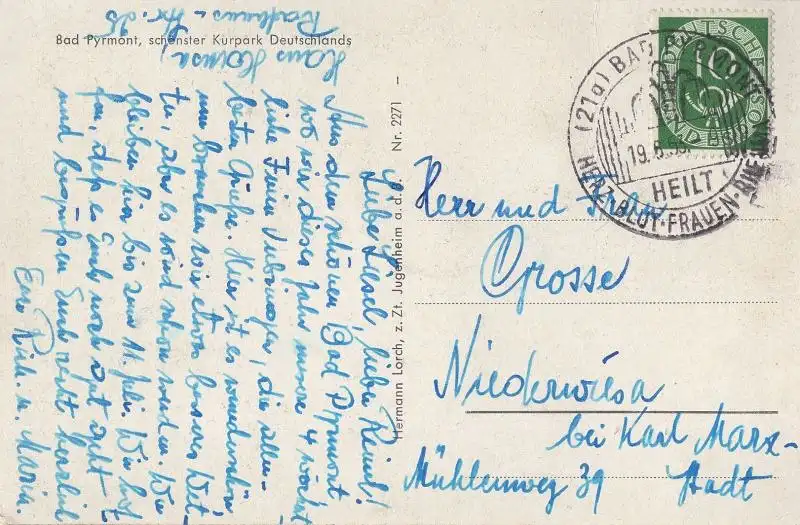 Bad Pyrmont, schönster Kurpark Deutschlands
Hans
Liebe Liesel, lieber Reinh!
Aus dem schönen Bad Pyrmont
wo wir dieses Jahr unsere 4 wöchent
liche Ferien verbringen, die aller-
besten Grüße. Hier ist es wunderschön
nur brauchen wir etwas besseres Wet-
ter, aber es wird schon werden. Wir
bleiben hier bis zum 11. Juli. Wir hof-
fen, daß es Euch noch gut geht
und begrüßen Euch recht herzlich
Eure Rich. u. Maria.
Hermann Lorch, z. Zt. Jugenheim a. d. B. Nr. 2271
DEUTSCHE BUNDESPOST
10
(21a) BAD PYRMONT
19.6.
HEILT
HERZ·BLUT·FRAUEN·
Herr und Frau
Grosse
Niederwiesa
bei Karl Marx-
Mühlenweg 39 Stadt